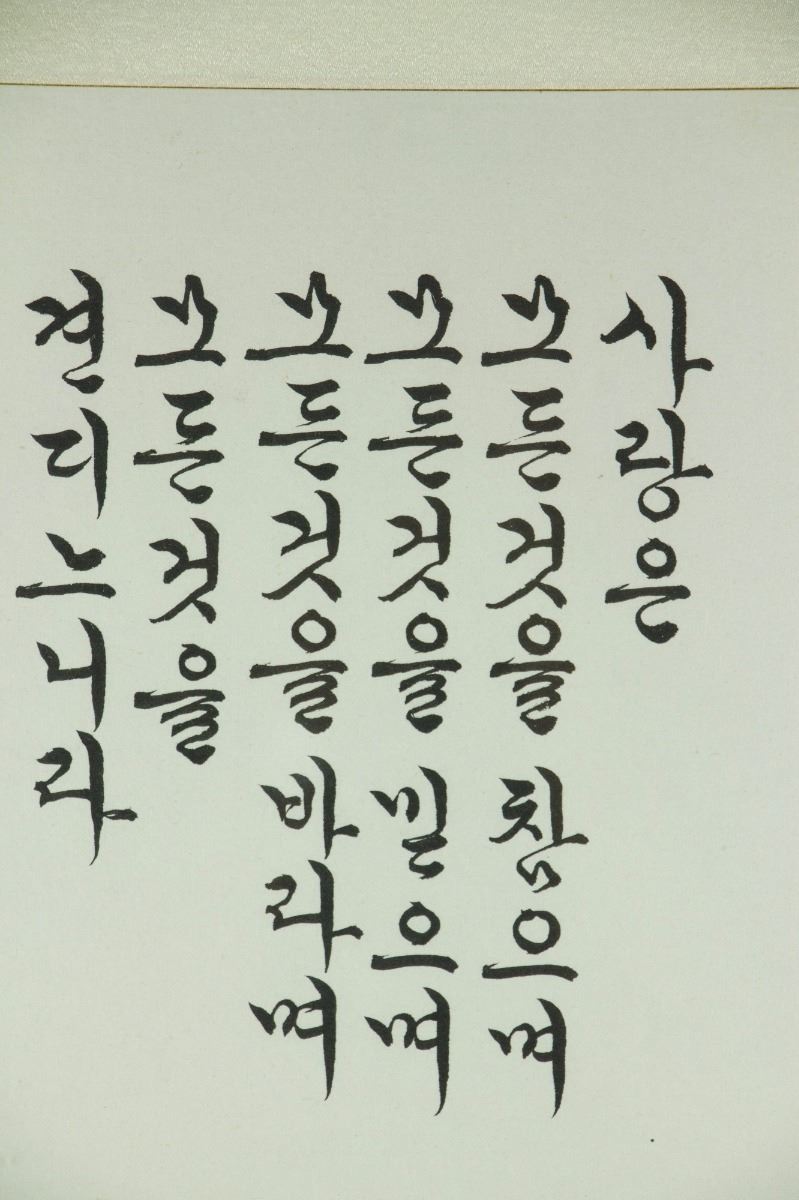 사랑은
모든것을 참으며
모든것을 믿으며
모든것을 바라며
모든것을
견디느니라